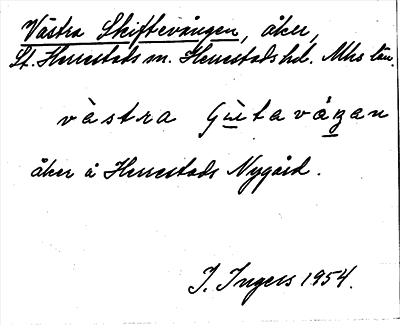 Västra Skiftevången, åker,
St. Herrestads sn. Herrestads hd. Mhs län.
västra Gütavåŋan
åker å Herrestads Nygård.
I. Ingers 1954.